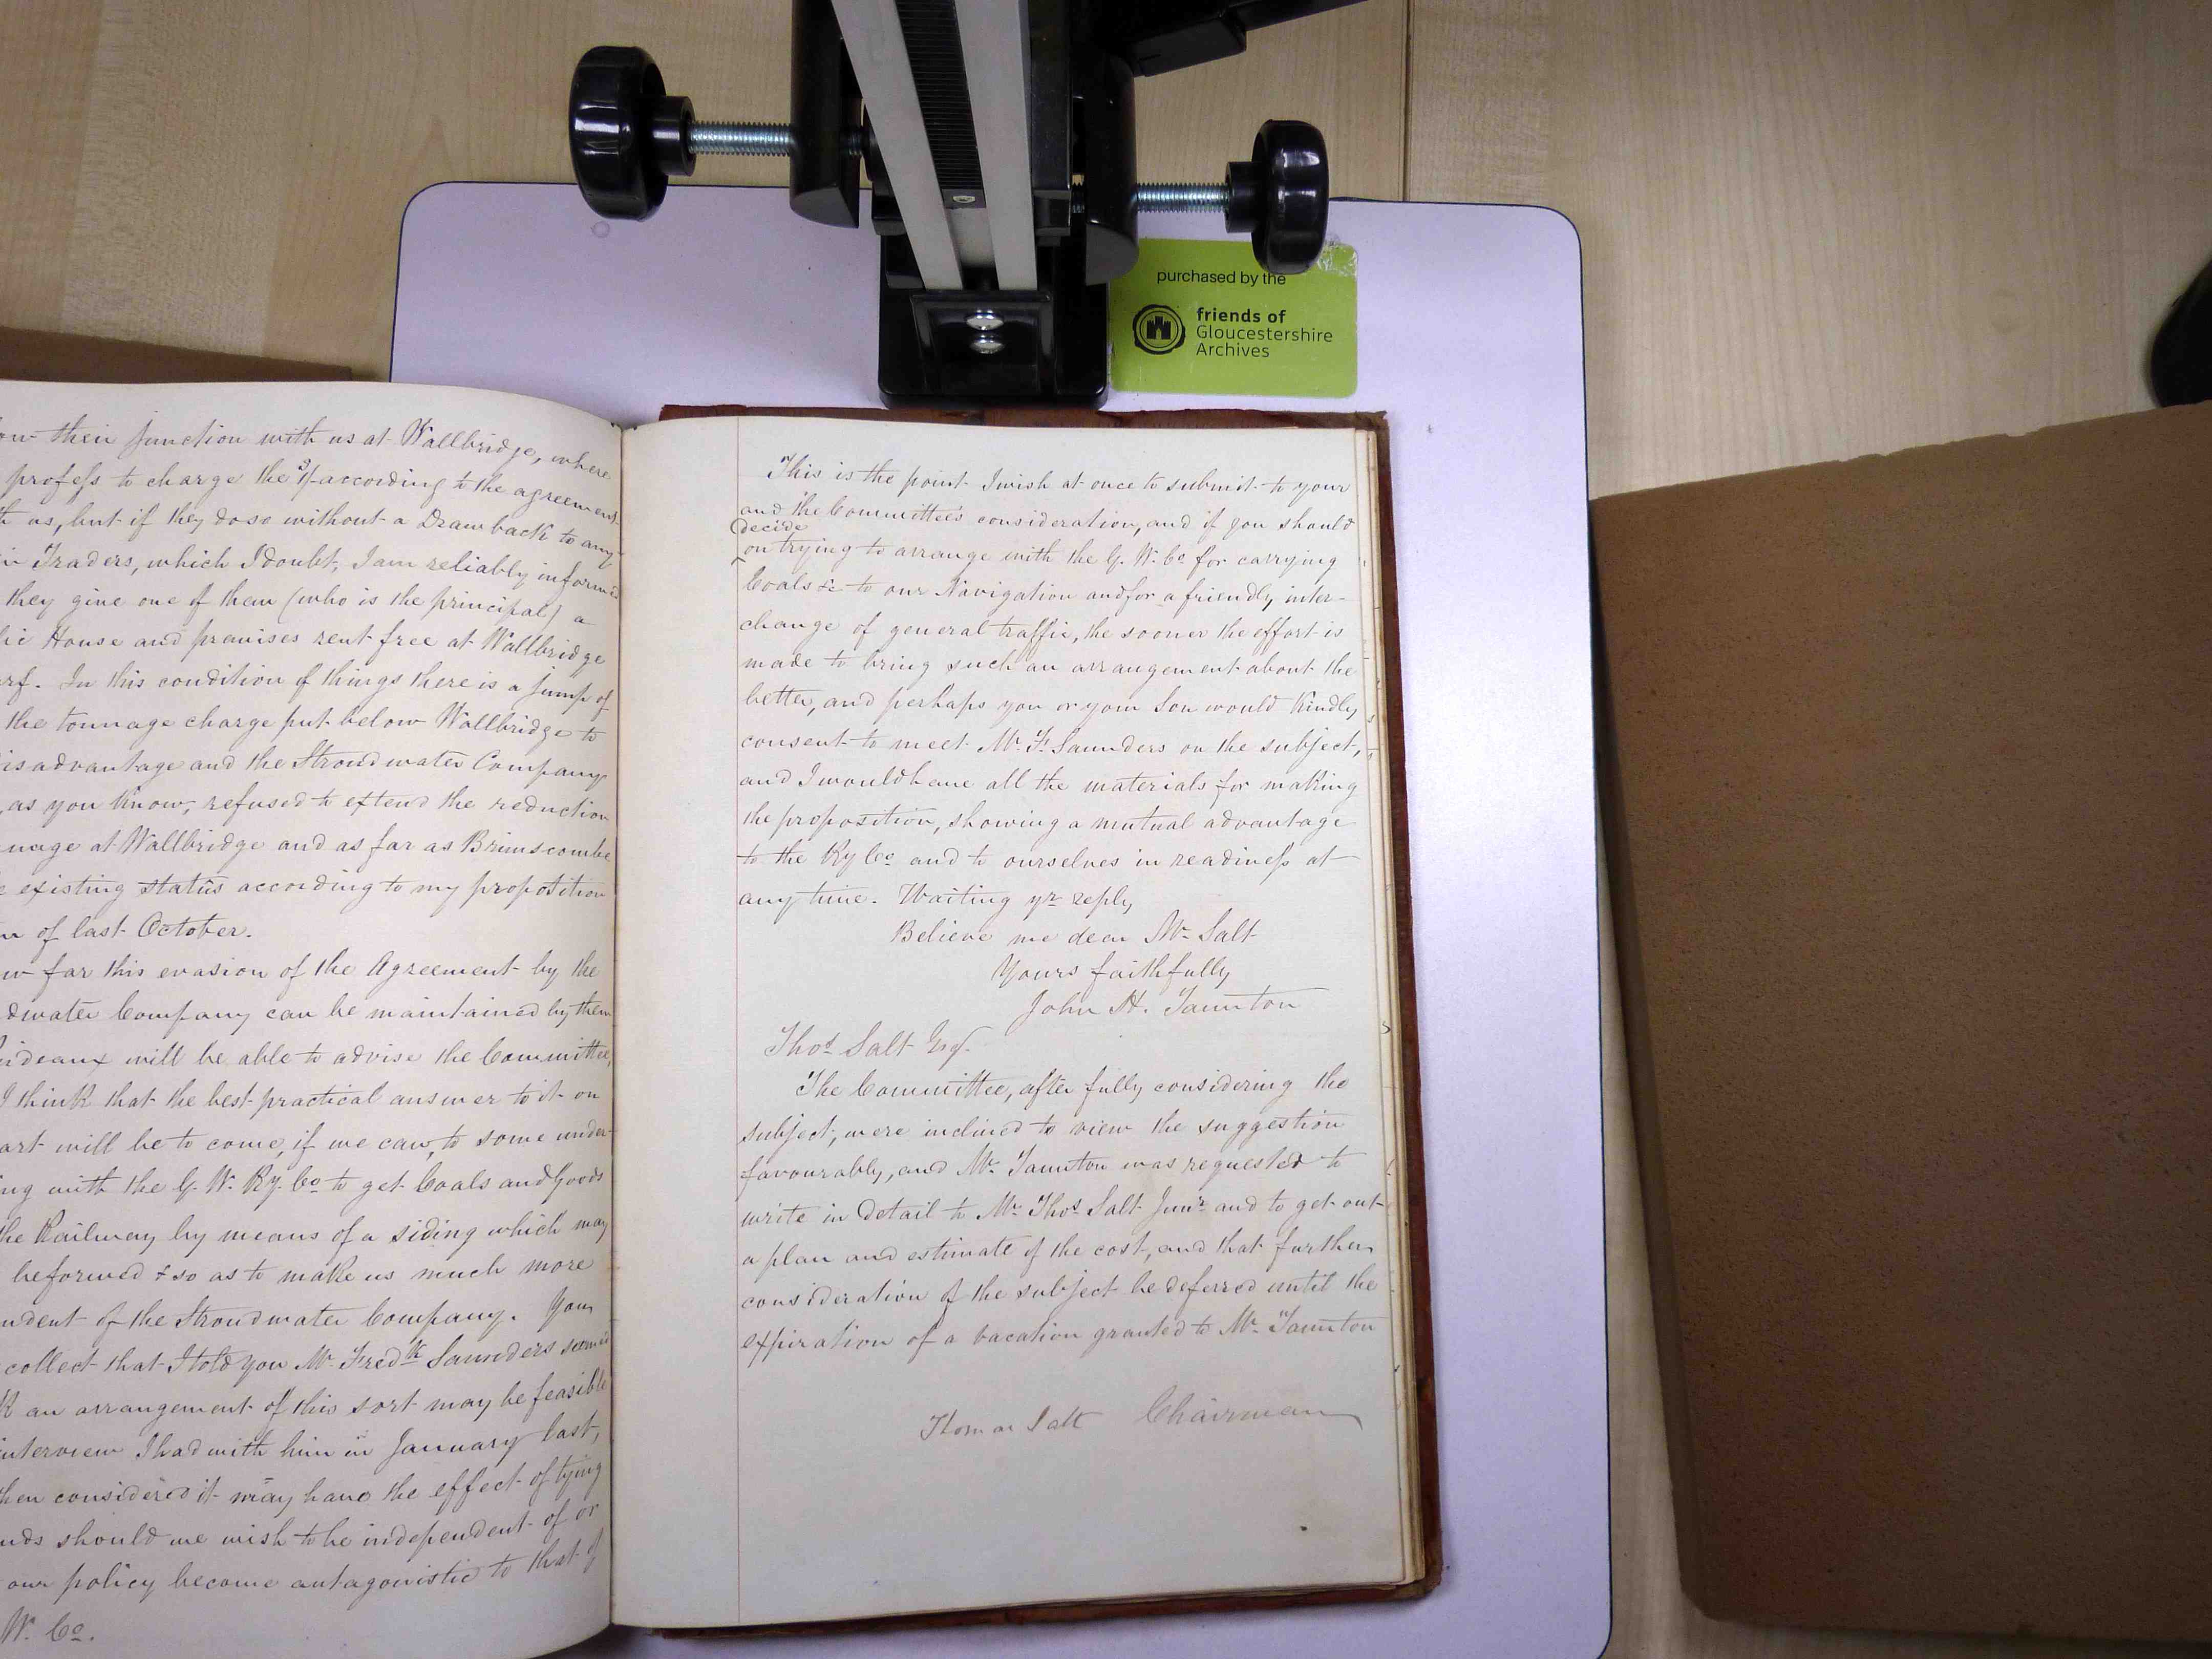 purchased by the
friends of
Gloucestershire
Archives
their junction with us at Wallbridge, where
profess to charge the 3/ according to the agreement
us, but if they do so without a Drawback to any
Traders, which I doubt, I am reliably informed
they give one of them (who is the principal) a
House and premises rent free at Wallbridge
In this condition of things there is a jump of
the tonnage charge put below Wallbridge to
advantage and the Stroudwater Company
as you know, refused to extend the reduction
at Wallbridge and as far as Brimscombe
existing status according to my proposition
of last October.
far this evasion of the Agreement by the
Company can be maintained by them
will be able to advise the Committee,
I think that the best practical answer to it on
will be to come, if we can, to some under-
with the G. W. Ry. Co to get Coals and Goods
the Railway by means of a siding which may
be formed & so as to make us much more
of the Stroudwater Company. You
collect that I told you Mr. Fredk Saunders seemed
an arrangement of this sort may be feasible
interview I had with him in January last,
considered it may have the effect of tying
should we wish to be independent of or
our policy become antagonistic to that of
W. Co.
This is the point I wish at once to submit to your
and the Committee's consideration, and if you should
decide
on trying to arrange with the G. W. Co for carrying
Coals &c to our Navigation and for a friendly inter-
change of general traffic, the sooner the effort is
made to bring such an arrangement about the
better, and perhaps you or your Son would kindly
consent to meet Mr. F. Saunders on the subject,
and I would have all the materials for making
the proposition, showing a mutual advantage
to the Ry Co and to ourselves in readiness at
any time. Waiting yr reply,
Believe me dear Mr Salt
Yours faithfully
John H. Taunton
Thos Salt Esq.
The Committee, after fully considering the
subject, were inclined to view the suggestion
favourably, and Mr. Taunton was requested to
write in detail to Mr Thos Salt Junr and to get out
a plan and estimate of the cost, and that further
consideration of the subject be deferred until the
expiration of a vacation granted to Mr. Taunton
Thomas Salt Chairman